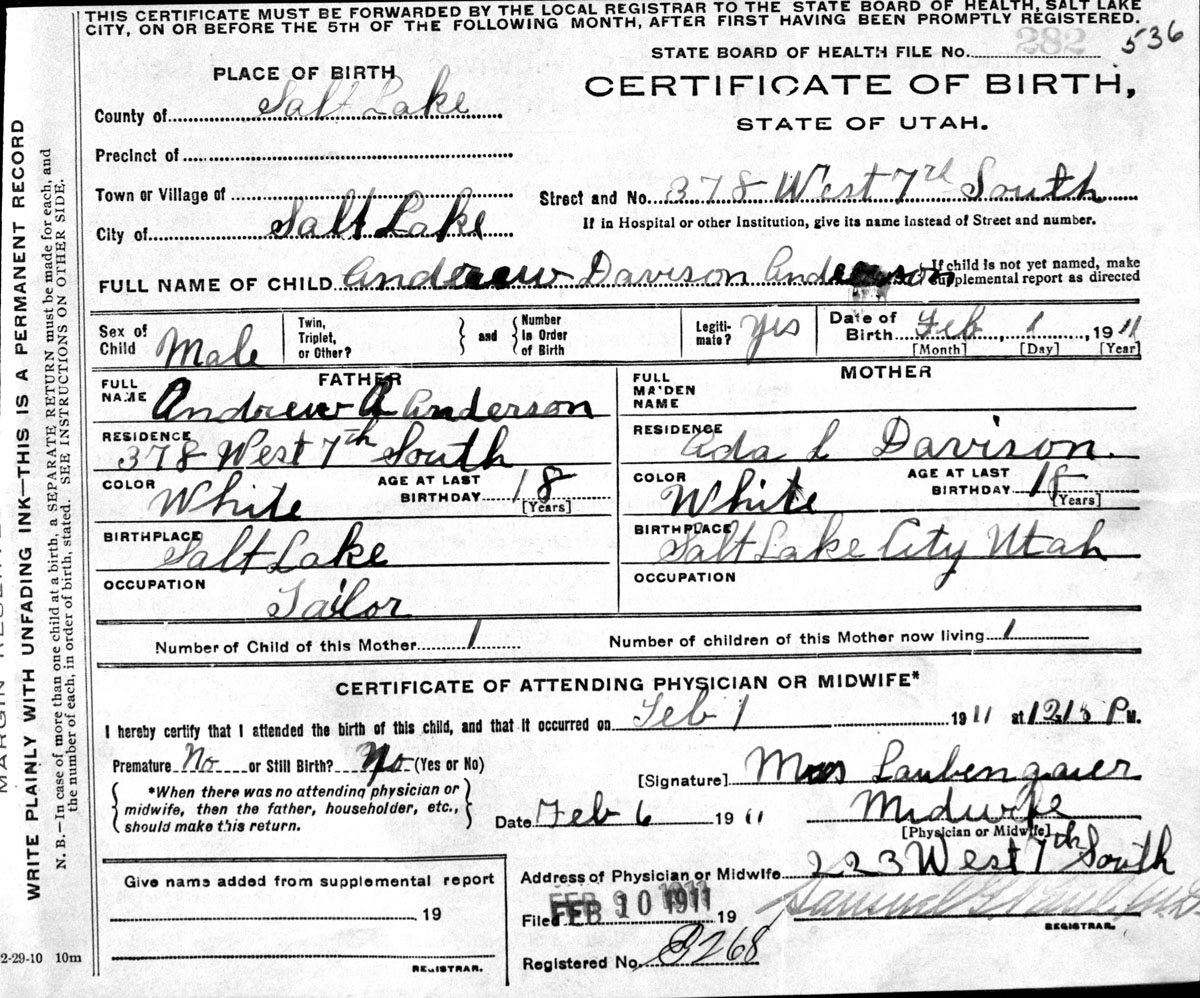 THIS CERTIFICATE MUST BE FORWARDED BY THE LOCAL REGISTRAR TO THE STATE BOARD OF HEALTH, SALT LAKE
CITY, ON OR BEFORE THE 5TH OF THE FOLLOWING MONTH, AFTER FIRST HAVING BEEN PROMPTLY REGISTERED.
STATE BOARD OF HEALTH FILE No. 282 536
PLACE OF BIRTH
CERTIFICATE OF BIRTH,
County of Salt Lake
STATE OF UTAH.
Precinct of
Town or Village of
Street and No. 378 West 7th South
City of Salt Lake
If in Hospital or other Institution, give its name instead of Street and number.
FULL NAME OF CHILD Andrew Davison Anderson
If child is not yet named, make
supplemental report as directed
Sex of Child Male
Twin, Triplet, or Other?
and
Number In Order of Birth
Legiti-mate? Yes
Date of Birth Feb 1, 1911
[Month] [Day] [Year]
FATHER
FULL NAME Andrew A Anderson
RESIDENCE 378 West 7th South
COLOR White
AGE AT LAST BIRTHDAY 18 [Years]
BIRTHPLACE Salt Lake
OCCUPATION Tailor
MOTHER
FULL MAIDEN NAME
RESIDENCE Ada L Davison.
COLOR White
AGE AT LAST BIRTHDAY 18 [Years]
BIRTHPLACE Salt Lake City Utah
OCCUPATION
Number of Child of this Mother 1
Number of children of this Mother now living 1
CERTIFICATE OF ATTENDING PHYSICIAN OR MIDWIFE*
I hereby certify that I attended the birth of this child, and that it occurred on Feb 1 1911 at 12 15 P M.
Premature No or Still Birth? No (Yes or No)
*When there was no attending physician or
midwife, then the father, householder, etc.,
should make this return.
[Signature] Mrs Laubengaier
Date Feb 6 1911
Midwife
[Physician or Midwife]
Address of Physician or Midwife 223 West 7th South
Give name added from supplemental report
19
REGISTRAR.
Filed FEB 10 1911 19
REGISTRAR.
Registered No. B268
2-29-10 10m
WRITE PLAINLY WITH UNFADING INK—THIS IS A PERMANENT RECORD
N. B.—In case of more than one child at a birth, a SEPARATE RETURN must be made for each, and
the number of each, in order of birth, stated. SEE INSTRUCTIONS ON OTHER SIDE.